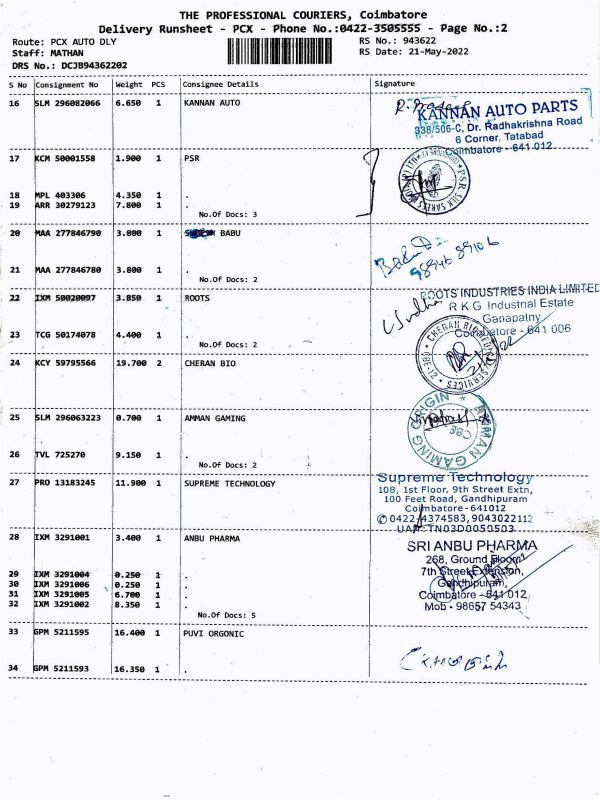 THE PROFESSIONAL COURIERS, Coimbatore
Delivery Runsheet - PCX - Phone No.:0422-3505555 - Page No.:2
Route: PCX AUTO DLY RS No.: 943622
Staff: MATHAN RS Date: 21-May-2022
DRS No.: DCJB94362202
S No Consignment No Weight PCS Consignee Details Signature
16 SLM 296082066 6.650 1 KANNAN AUTO
KANNAN AUTO PARTS
338/506-C, Dr. Radhakrishna Road
6 Corner, Tatabad
Coimbatore - 641 012
17 KCM 50001558 1.900 1 PSR
18 MPL 403306 4.350 1 .
19 ARR 30279123 7.800 1 .
No.Of Docs: 3
20 MAA 277846790 3.800 1 BABU
98946 89106
21 MAA 277846780 3.800 1 .
No.Of Docs: 2
22 IXM 50020097 3.850 1 ROOTS
ROOTS INDUSTRIES INDIA LIMITED
R K G Industrial Estate
Ganapathy
641 006
23 TCG 50174078 4.400 1 .
No.Of Docs: 2
24 KCY 59795566 19.700 2 CHERAN BIO
CHERAN BIOMEDICAL SERVICES
CBE-12
25 SLM 296063223 0.700 1 AMMAN GAMING
AMMAN GAMING ORIGIN
CBE
26 TVL 725270 9.150 1 .
No.Of Docs: 2
27 PRO 13183245 11.900 1 SUPREME TECHNOLOGY
Supreme Technology
108, 1st Floor, 9th Street Extn,
100 Feet Road, Gandhipuram
Coimbatore-641012
0422-4374583, 9043022112
28 IXM 3291001 3.400 1 ANBU PHARMA
SRI ANBU PHARMA
268, Ground Floor
7th Street Extension,
Gandhipuram,
Coimbatore - 641 012
Mob - 98657 54343
29 IXM 3291004 0.250 1 .
30 IXM 3291006 0.250 1 .
31 IXM 3291005 6.700 1 .
32 IXM 3291002 8.350 1 .
No.Of Docs: 5
33 GPM 5211595 16.400 1 PUVI ORGONIC
34 GPM 5211593 16.350 1 .